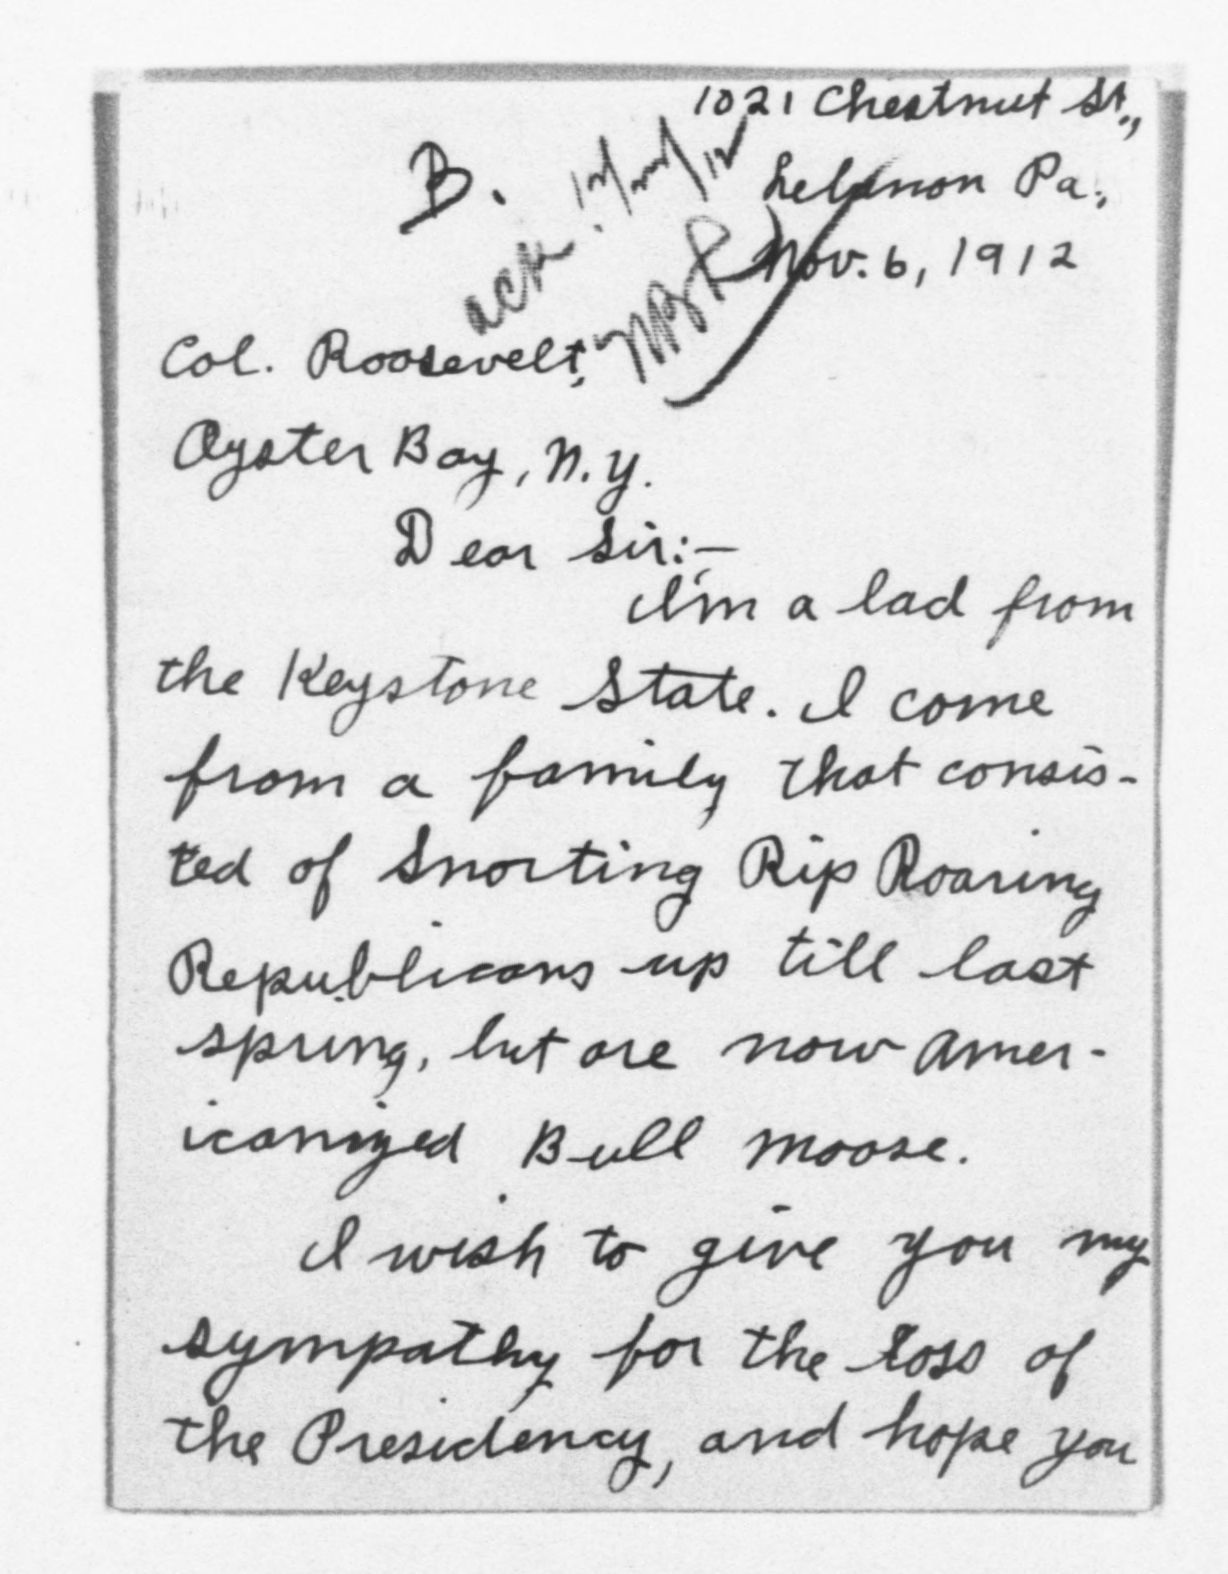 1021 Chestnut St.,
B.
Lebanon Pa.,
Nov. 6, 1912
ack.
Col. Roosevelt,
Oyster Bay, N.Y.
Dear Sir:—
I'm a lad from
the Keystone State. I come
from a family that consis-
ted of Snorting Rip Roaring
Republicans up till last
spring, but are now Amer-
icanized Bull Moose.
I wish to give you my
sympathy for the loss of
the Presidency, and hope you